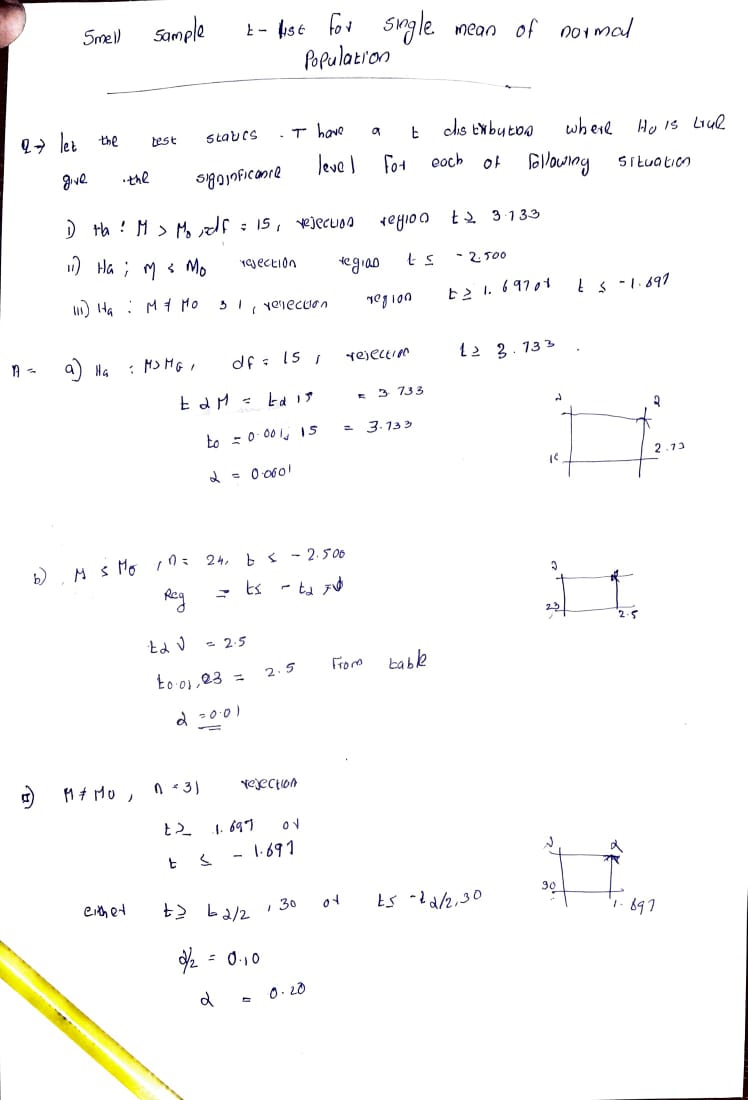 Smell sample t - tist for single mean of normal
Population
Q→ let the test statics . T have a t distributon where Ho is true
give .the significance level for each of following situation
i) Ha : M > Mo , df = 15, rejection region t ≥ 3.733
ii) Ha ; M < Mo rejection region t ≤ -2.500
iii) Ha : M ≠ Mo 31, rejection region t ≥ 1.697 or t ≤ -1.697
A = a) Ha : M > Mo, df = 15, rejection t ≥ 3.733 .
t α M = t α 15 = 3 733
to = 0.001, 15 = 3.733
α = 0.0001
b) . M ≤ Mo , n = 24, t ≤ - 2.500
Reg = t ≤ - tα
tα ν = 2.5
t0.01,23 = 2.5 From table
α = 0.01
M ≠ Mo , n = 31 rejection
t ≥ 1.697 or
t ≤ - 1.697
either t ≥ t α/2 , 30 or t ≤ -t α/2,30
α/2 = 0.10
α = 0.20
2.73
23
2.5
30
α
1.697